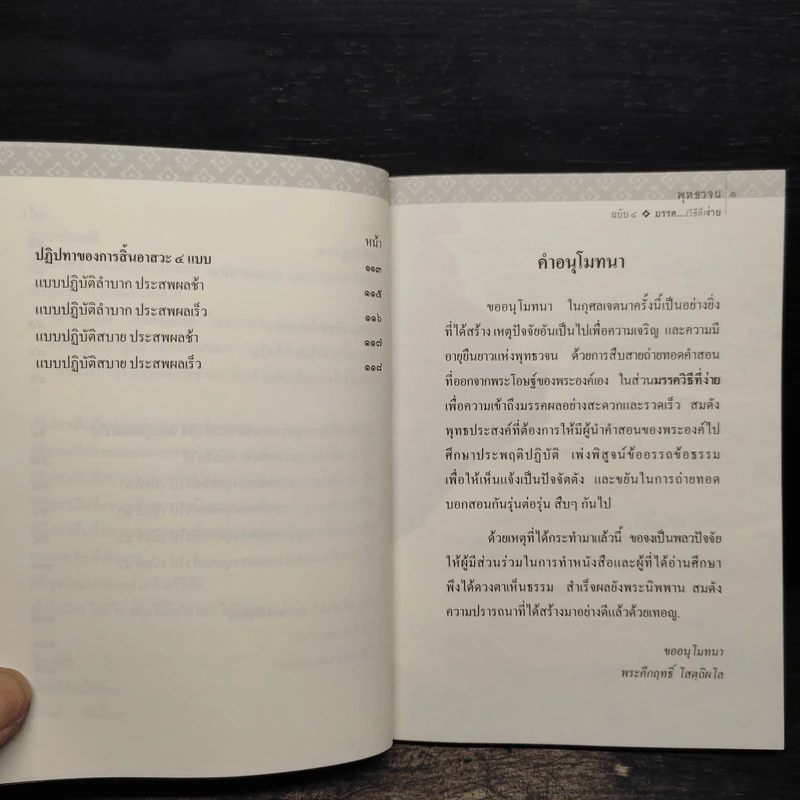 หน้า
ปฏิปทาของการสิ้นอาสวะ ๔ แบบ ๑๑๓
แบบปฏิบัติลำบาก ประสพผลช้า ๑๑๕
แบบปฏิบัติลำบาก ประสพผลเร็ว ๑๑๖
แบบปฏิบัติสบาย ประสพผลช้า ๑๑๗
แบบปฏิบัติสบาย ประสพผลเร็ว ๑๑๘
พุทธวจน ๑
ฉบับ ๔ ❖ มรรค...(วิธีที่)ง่าย
คำอนุโมทนา
ขออนุโมทนา ในกุศลเจตนาครั้งนี้เป็นอย่างยิ่ง
ที่ได้สร้าง เหตุปัจจัยอันเป็นไปเพื่อความเจริญ และความมี
อายุยืนยาวแห่งพุทธวจน ด้วยการสืบสายถ่ายทอดคำสอน
ที่ออกจากพระโอษฐ์ของพระองค์เอง ในส่วนมรรควิธีที่ง่าย
เพื่อความเข้าถึงมรรคผลอย่างสะดวกและรวดเร็ว สมดัง
พุทธประสงค์ที่ต้องการให้มีผู้นำคำสอนของพระองค์ไป
ศึกษาประพฤติปฏิบัติ เพ่งพิสูจน์ข้ออรรถข้อธรรม
เพื่อให้เห็นแจ้งเป็นปัจจัตตัง และขยันในการถ่ายทอด
บอกสอนกันรุ่นต่อรุ่น สืบๆ กันไป
ด้วยเหตุที่ได้กระทำมาแล้วนี้ ขอจงเป็นพลวปัจจัย
ให้ผู้มีส่วนร่วมในการทำหนังสือและผู้ที่ได้อ่านศึกษา
พึงได้ดวงตาเห็นธรรม สำเร็จผลยังพระนิพพาน สมดัง
ความปรารถนาที่ได้สร้างมาอย่างดีแล้วด้วยเทอญ.
ขออนุโมทนา
พระคึกฤทธิ์ โสตฺถิผโล